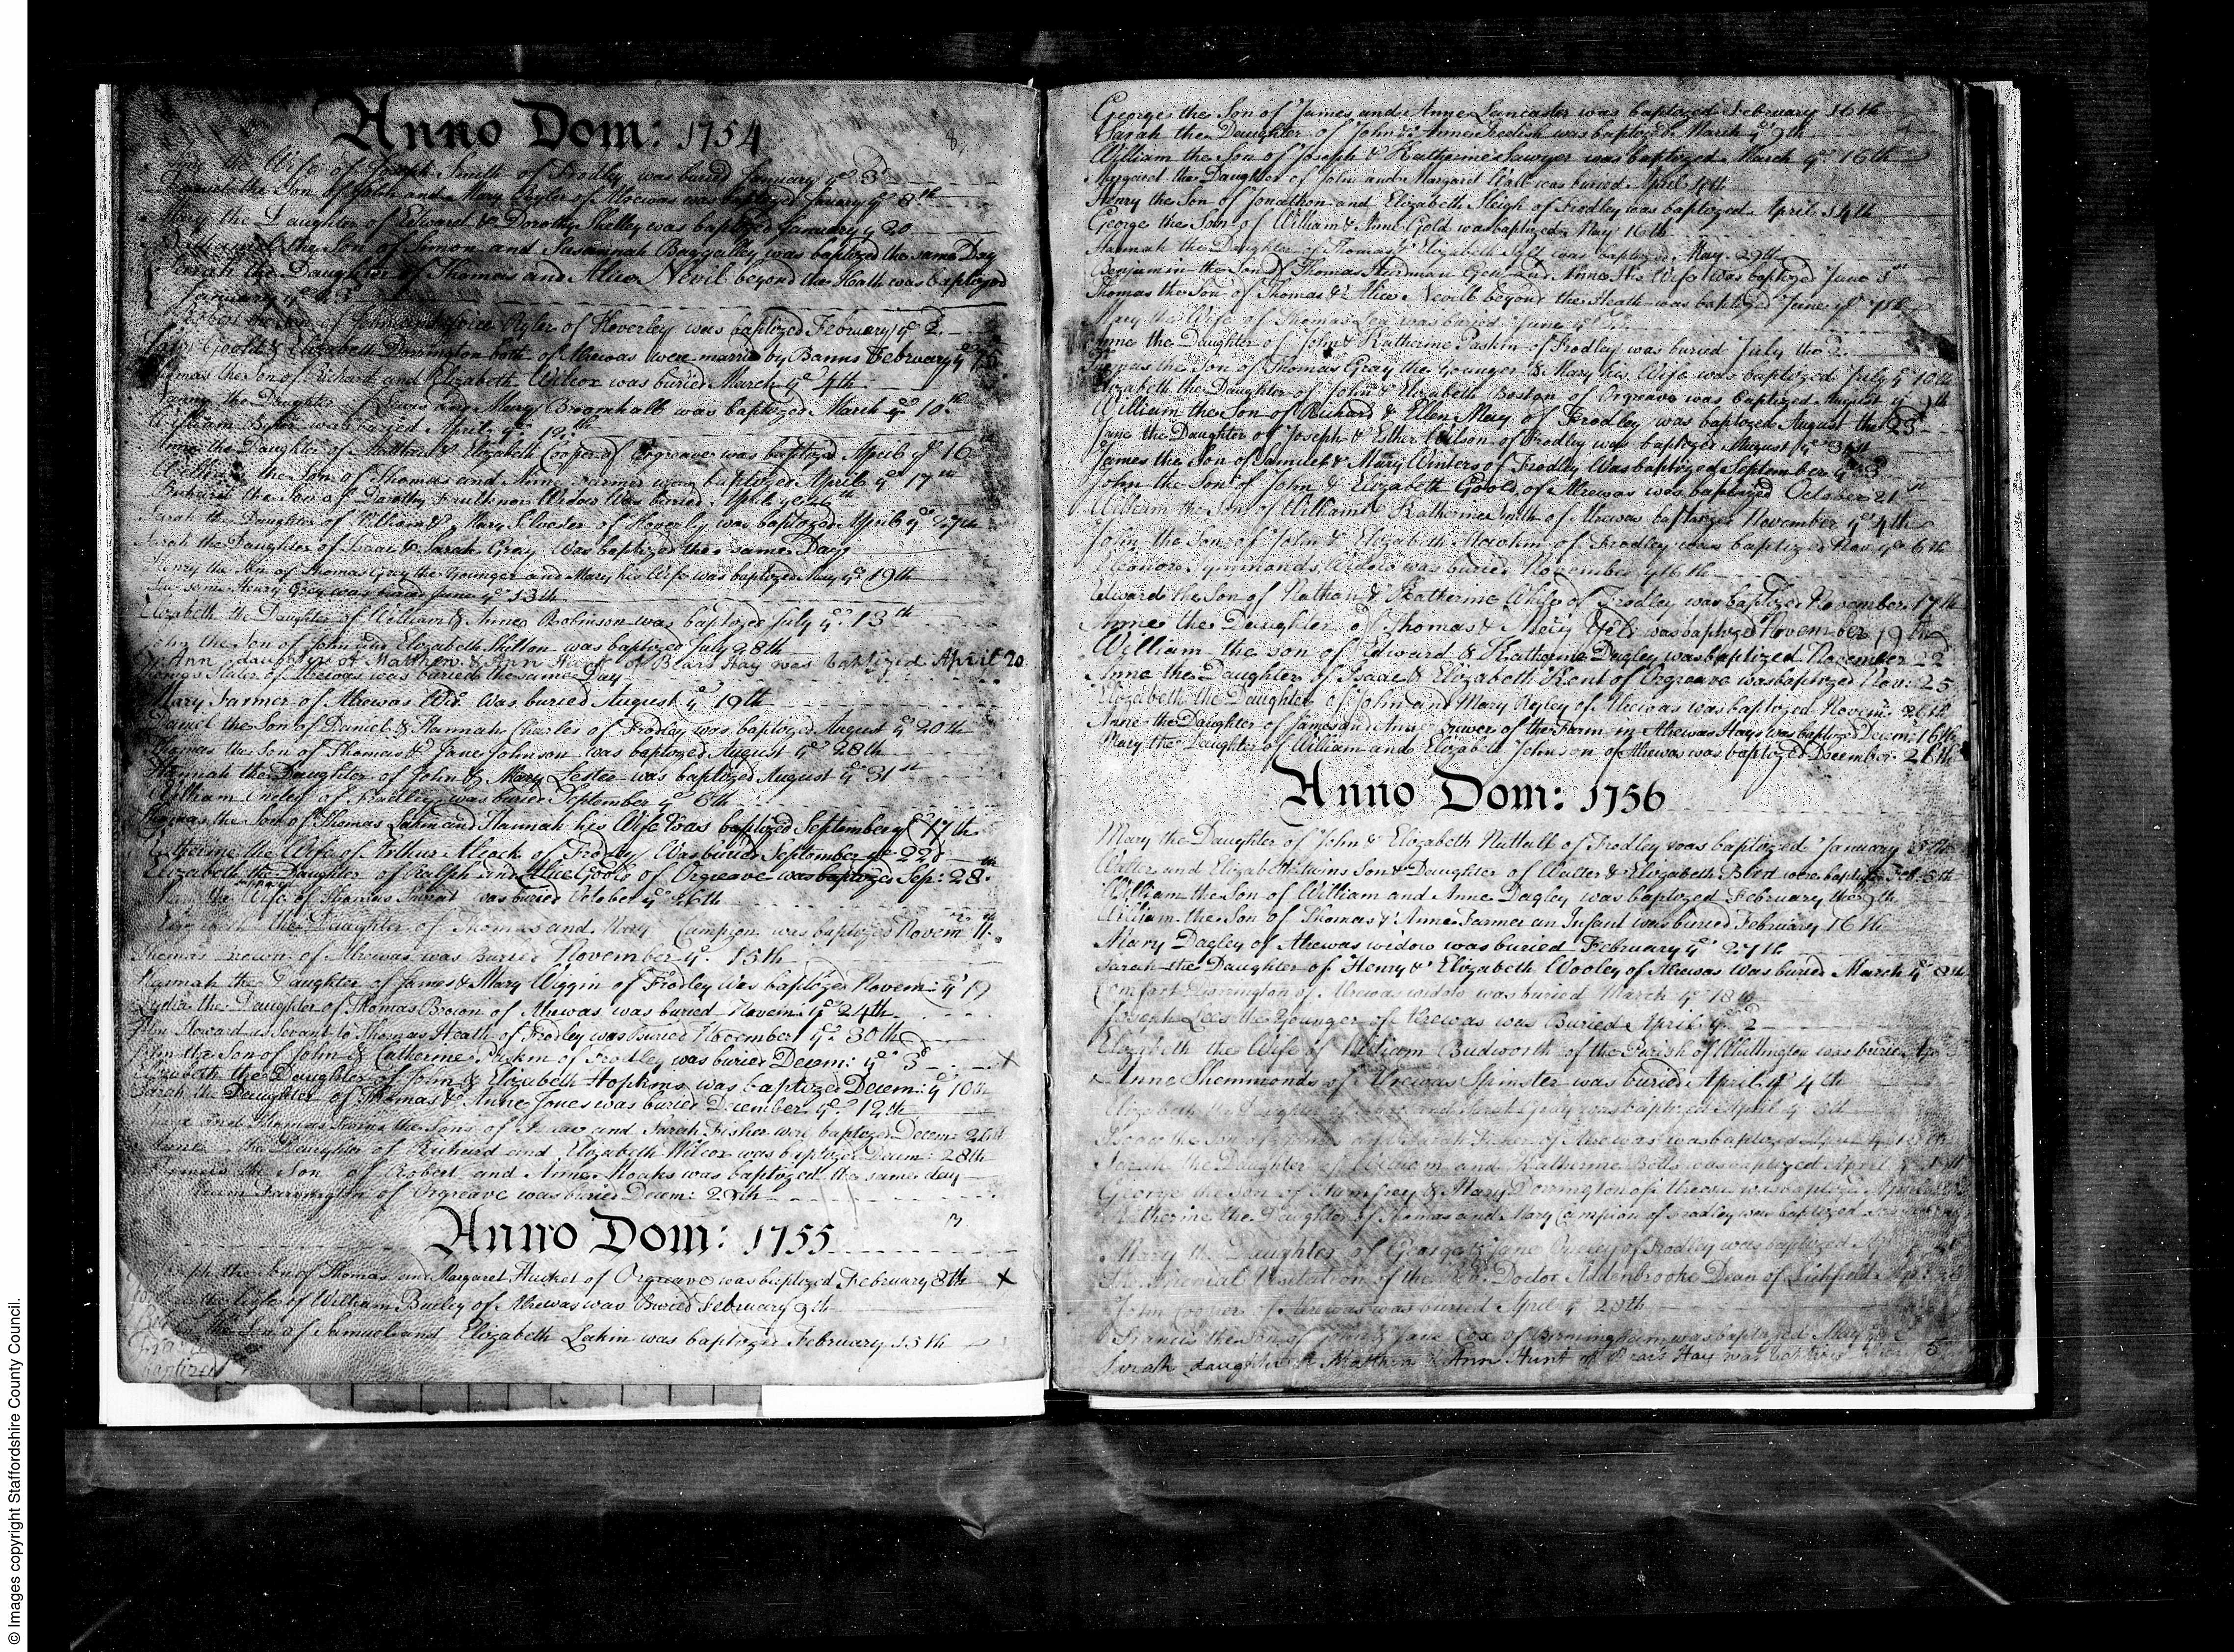 Anno Dom: 1754
8
the Wife of Joseph Smith of Fradley was buried January ye 3d
Daniel the Son of John and Mary Ryley of Alrewas was baptized January ye 8th
Mary the Daughter of Edward & Dorothy Shelley was baptized January ye 20
the Son of Simon and Susannah Baggalley was baptized the same Day
Sarah the Daughter of Thomas and Alice Nevil beyond the Heath was baptized
January ye 23
Robert the Son of John and Ryler of Hoverley was baptized February ye 2
Goold & Elizabeth Dorrington both of Alrewas were married by Banns February ye 15
Thomas the Son of Richard and Elizabeth Wilcox was buried March ye 4th
the Daughter of Lewis and Mary Broomhall was baptized March ye 10th
William was buried April ye 12th
Anne the Daughter of Matthew & Elizabeth Cooper of Orgreave was baptized April ye 16
William the Son of Thomas and Anne Farmer was baptized April ye 17th
the Son of Dorothy Faulknor Widow Was buried April ye 26th
Sarah the Daughter of William & Mary Silvester of Hoverly was baptized April ye 27th
Sarah the Daughter of Isaac & Sarah Gray Was baptized the same Day
Henry the Son of Thomas Gray the Younger and Mary his Wife was baptized May ye 19th
The same Henry Gray was buried June ye 13th
Elizabeth the Daughter of William & Anne Robinson was baptized July ye 13th
John the Son of John and Elizabeth Shilton was baptized July 28th
Ann daughter of Matthew & Ann of Bears Hay was baptized April 20
Thomas Slater of Alrewas was buried the same Day
Mary Farmer of Alrewas Wid. Was buried August ye 19th
Daniel the Son of Daniel & Hannah Charles of Fradley was baptized August ye 20th
Thomas the Son of Thomas & Jane Johnson was baptized August ye 28th
Hannah the Daughter of John & Mary Lester was baptized August ye 31st
William of Fradley was buried September ye 6th
Thomas the Son of Thomas Lakin and Hannah his Wife was baptized September ye 17th
Catherine the Wife of Arthur Alcock of Fradley Was buried September ye 22d
Elizabeth the Daughter of Ralph and Alice Goold of Orgreave was baptized Sep: 28th
the Wife of Thomas was buried October ye 26th
the Daughter of Thomas and Mary Campion was baptized Novem ye 11th
Thomas Brown of Alrewas was Buried November ye 15th
Hannah the Daughter of James & Mary Wiggin of Fradley was baptized Novem: ye 19
Lydia the Daughter of Thomas Brown of Alrewas was buried Novem: ye 24th
John Howard a Servant to Thomas Heath of Fradley was buried November ye 30th
John the Son of John & Catherine Paskin of Fradley was buried Decem: ye 3d X
Elizabeth the Daughter of John & Elizabeth Hopkins was baptized Decem: ye 10th
Sarah the Daughter of Thomas & Anne Jones was buried December ye 12th
and Thomas Twins the Sons of Isaac and Sarah Fisher were baptized Decem: 26th
the Daughter of Richard and Elizabeth Wilcox was baptized Decem: 28th
the Son of Robert and Anne Hoaks was baptized the same day
Farrington of Orgreave was buried Decem: 29th
Anno Dom: 1755
the Son of Thomas and Margaret Hucket of Orgreave was baptized February 8th X
the Wife of William Burley of Alrewas was Buried February 9th
the Son of Samuel and Elizabeth Lakin was baptized February 15th
baptized
George the Son of James and Anne Lancaster was baptized February 16th
Sarah the Daughter of John & Anne was baptized March ye 9th
William the Son of Joseph & Katherine Sawyer was baptized March ye 16th
Margaret the Daughter of John and Margaret Hall was buried April 4th
Henry the Son of Jonathon and Elizabeth Sleigh of Fradley was baptized April 14th
George the Son of William & Anne Gold was baptized May 16th
Hannah the Daughter of Thomas & Elizabeth was baptized May 29th
Benjamin the Son of Thomas Hurdman Gen: and Anne His Wife was baptized June 3rd
Thomas the Son of Thomas & Alice Nevill beyond the Heath was baptized June ye 7th
Mary the Wife of Thomas Lea was buried June ye
Anne the Daughter of John & Katherine Paskin of Fradley was buried July the 2
Thomas the Son of Thomas Gray the Younger & Mary his Wife was baptized July ye 10th
Elizabeth the Daughter of John & Elizabeth Boston of Orgreave was baptized August ye
William the Son of Richard & Ellen May of Fradley was baptized August the 23
Jane the Daughter of Joseph & Esther Wilson of Fradley was baptized August ye 31st
James the Son of Samuel & Mary Winters of Fradley Was baptized September ye 3d
John the Son of John & Elizabeth Goold of Alrewas was baptized October 21st
William the Son of William & Katherine Smith of Alrewas baptized November ye 4th
John the Son of John & Elizabeth of Fradley was baptized Nov ye 6th
Eleanore Symmonds Widow was buried November ye 16th
Edward the Son of Nathan & Katherine White of Fradley was baptized November 17th
Anne the Daughter of Thomas & Mary was baptized November 19th
William the son of Edward & Katherine Dagley was baptized November 22
Anne the Daughter of Isaac & Elizabeth Kent of Orgreave was baptized Nov: 25
Elizabeth the Daughter of John and Mary Ryley of Alrewas was baptized Novem: 26th
Anne the Daughter of James and Anne Brewer of the Farm in Alrewas Hays was baptized Decem: 16th
Mary the Daughter of William and Elizabeth Johnson of Alrewas was baptized December 26th
Anno Dom: 1756
Mary the Daughter of John & Elizabeth Nuttall of Fradley was baptized January 5th
Walter and Elizabeth twins Son & Daughter of Walter & Elizabeth were baptized Feb: 6th
William the Son of William and Anne Dagley was baptized February the 9th
William the Son of Thomas & Anne Farmer an Infant was buried February 16th
Mary Dagley of Alrewas widow was buried February ye 27th
Sarah the Daughter of Henry & Elizabeth Wooley of Alrewas Was buried March ye 8th
Comfort Dorrington of Alrewas widow was buried March ye 18th
Joseph Lees the Younger of Alrewas was Buried April ye 2
Elizabeth the Wife of William Budworth of the Parish of Whittington was buried
Anne Shemmonds of Alrewas Spinster was buried April ye 4th
Elizabeth the Daughter of Isaac and Sarah Gray was baptized April ye
Isaac the Son of and Sarah Fisher of Alrewas was baptized
Sarah the Daughter of William and Katherine Botts was baptized April
George the Son of Humfrey & Mary Dorrington of Alrewas was baptized April
Katherine the Daughter of Thomas and Mary Campion of Fradley was baptized
Mary the Daughter of George & Jane of Fradley was baptized
Visitation of the Rd Doctor Addenbrooke Dean of Lichfield
John Cooper of Alrewas was buried April ye 28th
Francis the Son of John & Jane Cox of Birmingham was baptized May
Sarah daughter of Matthew & Ann Hunt of Bears Hay was baptized
© Images copyright Staffordshire County Council.